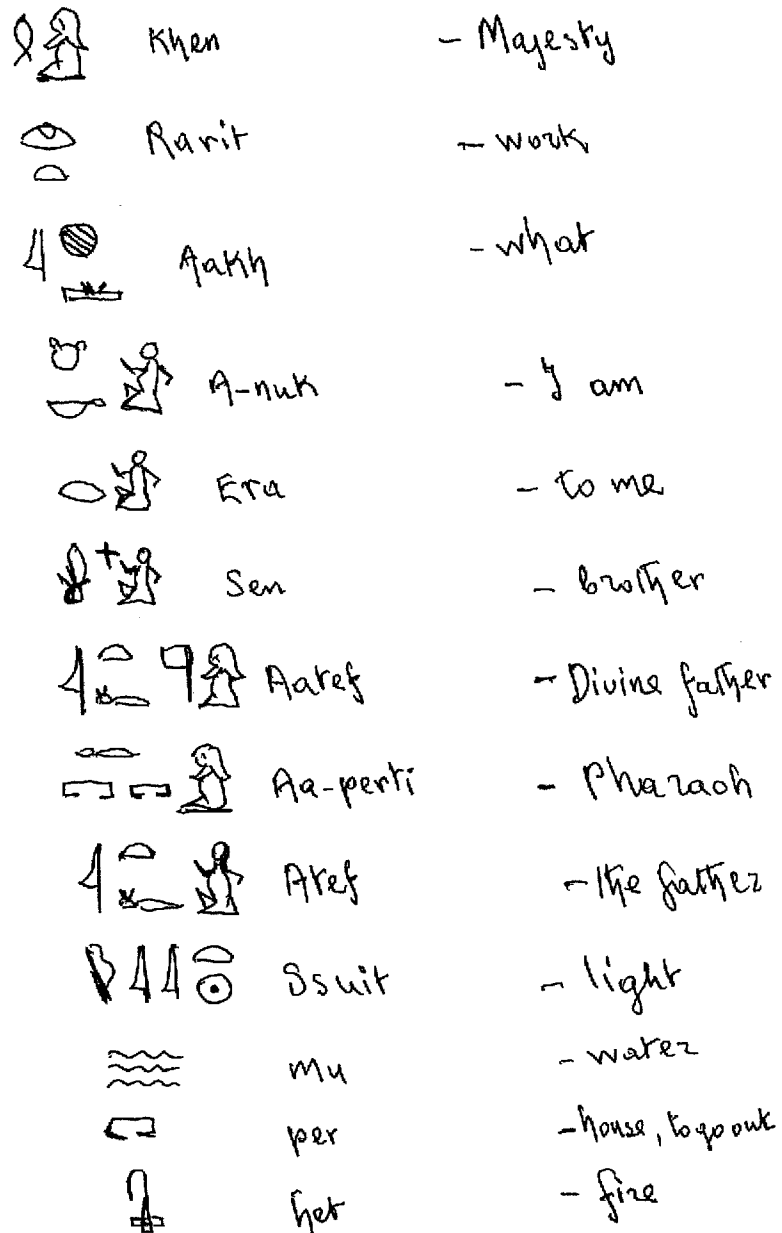 Khen - Majesty
Rarit - work
Aakh - what
A-nuk - I am
Era - to me
Sen - brother
Aatef - Divine father
Aa-perti - Pharaoh
Atef - the father
Ssuit - light
Mu - water
per - house, to go out
het - fire